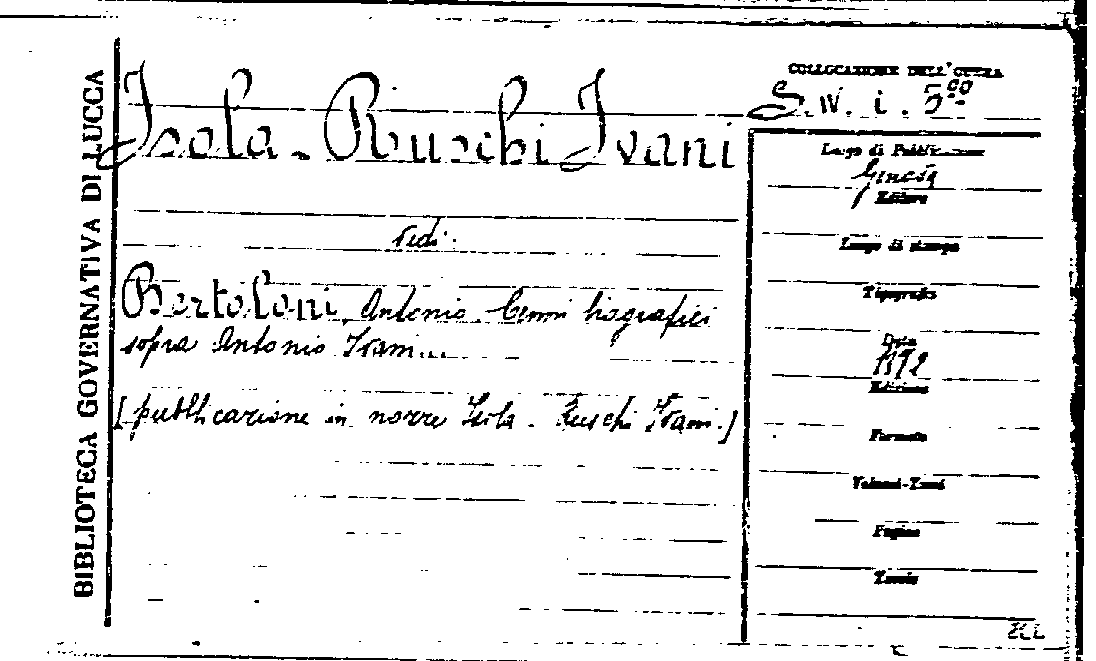 BIBLIOTECA GOVERNATIVA DI LUCCA
Isola - Ruschi Ivani
vedi:
Bertoloni Antonio. Cenni biografici
sopra Antonio Ivani...
[pubblicazione in nozze Isola - Ruschi Ivani.]
COLLOCAZIONE DELL'OPERA
S. IV. i. 5
Luogo di Pubblicazione
Genova
Editore
Luogo di stampa
Tipografo
Data
1892
Edizione
Formato
Volumi-Tomi
Pagine
Tavole